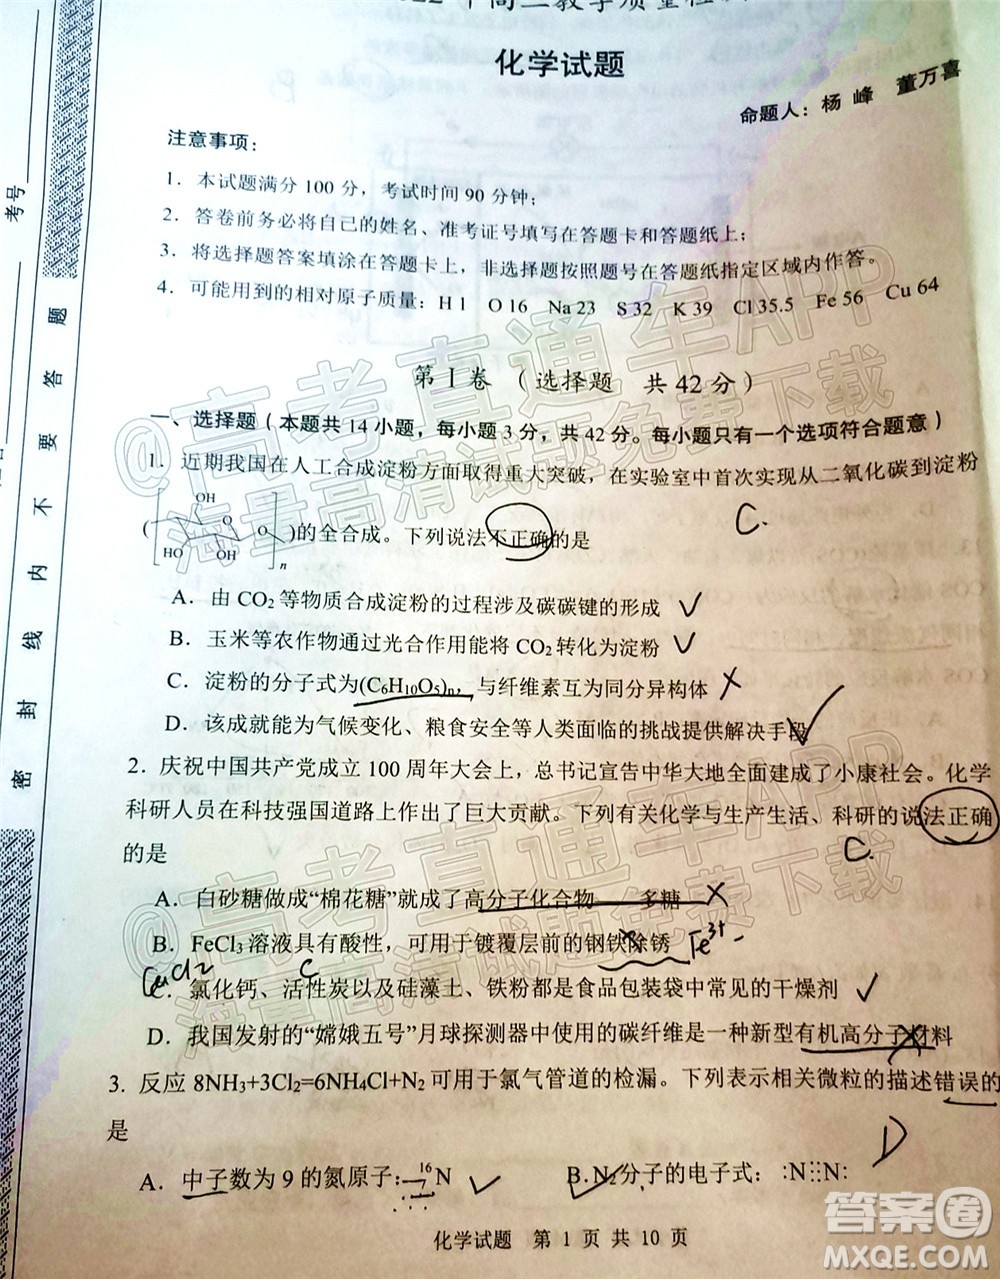 022年高三教学质量检
化学试题
命题人：杨 峰 董万喜
注意事项：
1．本试题满分 100 分，考试时间 90 分钟；
2．答卷前务必将自己的姓名、准考证号填写在答题卡和答题纸上；
3．将选择题答案填涂在答题卡上，非选择题按照题号在答题纸指定区域内作答。
4．可能用到的相对原子质量：H 1 O 16 Na 23 S 32 K 39 Cl 35.5 Fe 56 Cu 64
第 I 卷 （选择题 共 42 分）
一、选择题（本题共 14 小题，每小题 3 分，共 42 分。每小题只有一个选项符合题意）
1．近期我国在人工合成淀粉方面取得重大突破，在实验室中首次实现从二氧化碳到淀粉
( [ OH O OH HO OH O ]n )的全合成。下列说法不正确的是
C.
A．由 CO2 等物质合成淀粉的过程涉及碳碳键的形成
B．玉米等农作物通过光合作用能将 CO2 转化为淀粉
C．淀粉的分子式为(C6H10O5)n，与纤维素互为同分异构体
D．该成就能为气候变化、粮食安全等人类面临的挑战提供解决手段
2．庆祝中国共产党成立 100 周年大会上，总书记宣告中华大地全面建成了小康社会。化学
科研人员在科技强国道路上作出了巨大贡献。下列有关化学与生产生活、科研的说法正确
的是
C.
A．白砂糖做成“棉花糖”就成了高分子化合物——多糖
B．FeCl3 溶液具有酸性，可用于镀覆层前的钢铁除锈
Fe3+
CaCl2 C
C．氯化钙、活性炭以及硅藻土、铁粉都是食品包装袋中常见的干燥剂
D．我国发射的“嫦娥五号”月球探测器中使用的碳纤维是一种新型有机高分子材料
3．反应 8NH3+3Cl2=6NH4Cl+N2 可用于氯气管道的检漏。下列表示相关微粒的描述错误的
是
D
A．中子数为 9 的氮原子：16 7 N B．N2 分子的电子式：:N⋮⋮N:
化学试题 第 1 页 共 10 页
考号
密 封 线 内 不 要 答 题
@高考直通车APP
海量高清试题免费下载
@高考直通车APP
海量高清试题免费下载
答案圈
MXQE.COM